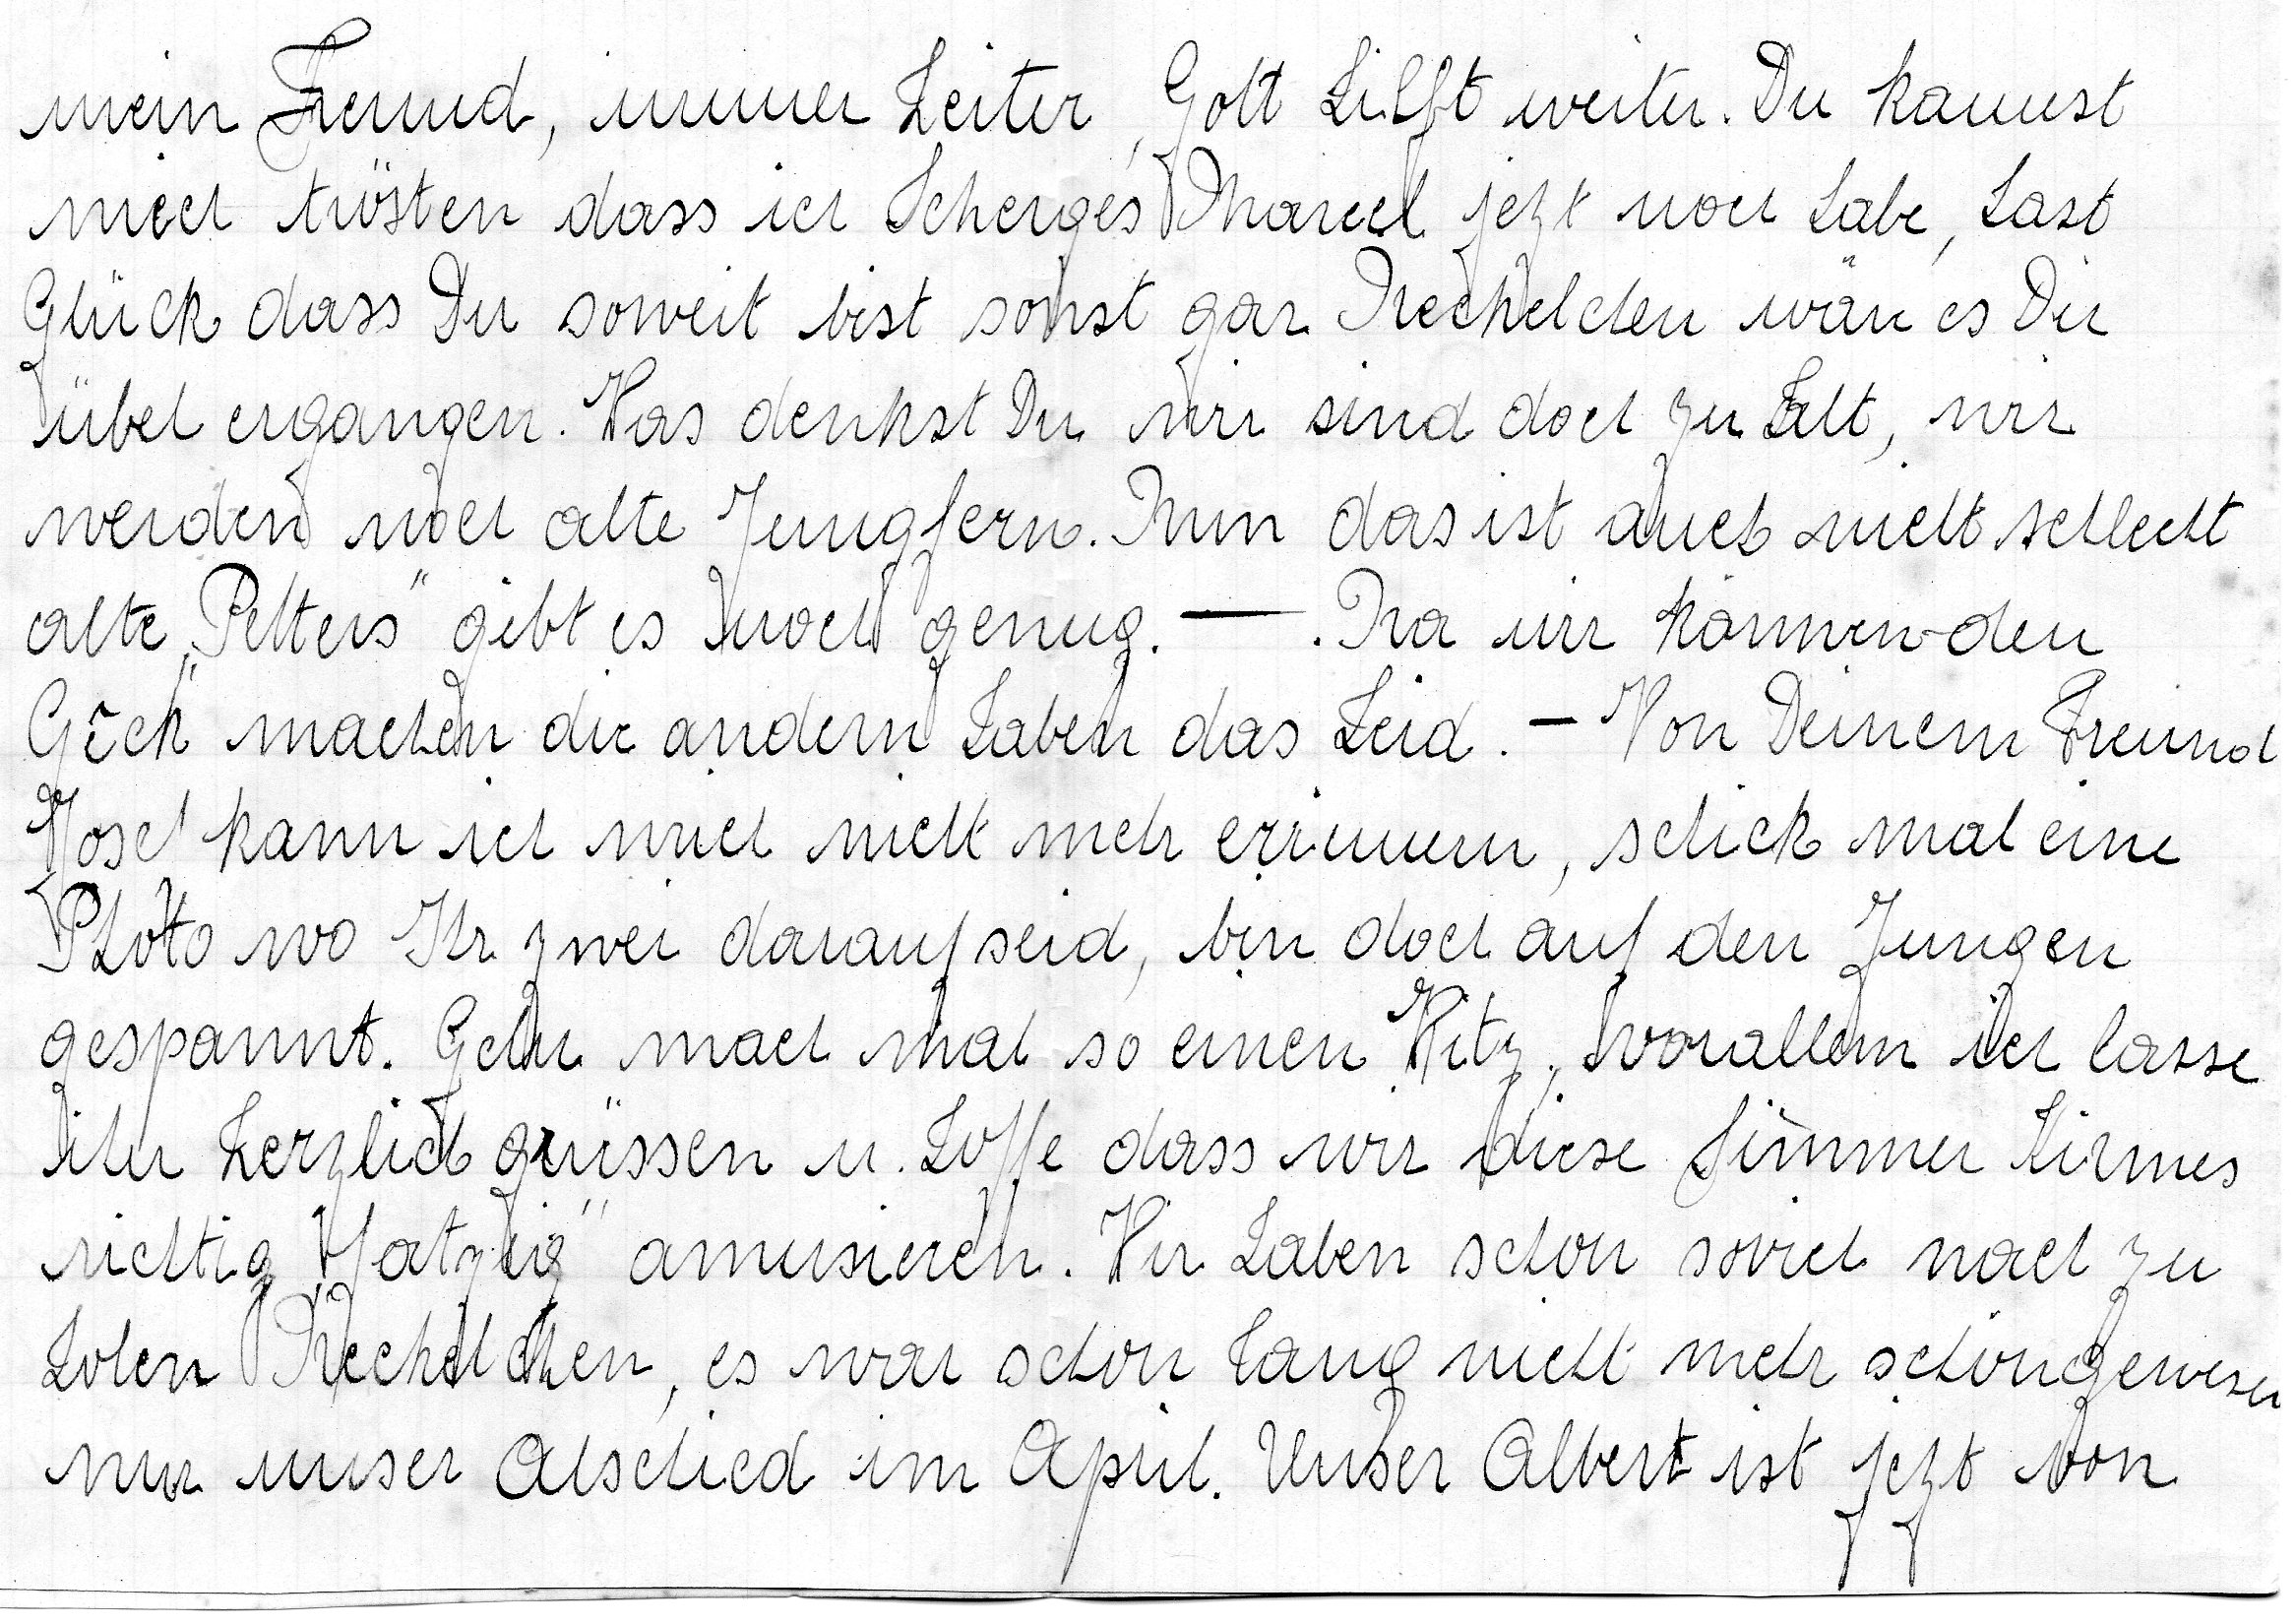 mein Freund, immer heiter, Gott hilft weiter. Du kannst
mich trösten dass ich Scherges Marcel jetzt noch habe, hast
Glück dass Du soweit bist sonst gar Neckelchen wäre es Dir
übel ergangen. Was denkst Du wir sind doch zu alt, wir
werden noch alte Jungfern. Nun das ist auch nicht schlecht
alte "Petters" gibt es noch genug. — . Na wir können den
"Geck" machen die andern haben das Leid. – Von Deinem Freund
Josel kann ich mich nicht mehr erinnern, schick mal eine
Photo wo Ihr zwei darauf seid, bin doch auf den Jungen
gespannt. Gehn mach mal so einen Witz, vorallem ich lasse
ihn herzlich grüssen u. hoffe dass wir diese Simmer Kirmes
richtig "fatzig" amusieren. Wir haben schon soviel nach zu
holen Neckelchen, es war schon lang nicht mehr schön gewesen
nur unser Abschied im April. Unser Albert ist jetzt von